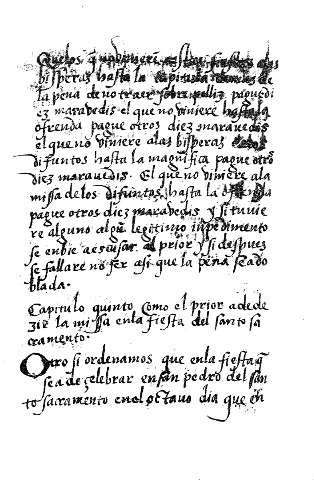 quelos q no viniere a estas fiestas alas
bisperas hasta la capitula demas de
la pena de no traer sobre pelliz pague di
ez maravedis el que no viniere hasta la
ofrenda pague otros diez maravedis
el que no viniere alas bisperas de los
difuntos hasta la magnifica pague otros
diez maravedis. El que no viniere ala
missa de los difuntos hasta la ofrenda
pague otros diez maravedis y si tuvie
re alguno alguⁿ legitimo inpedimento
se enbie a escusar al prior y si despues
se fallare no ser asi que la pena sea do
blada.
Capitulo quinto como el prior a de de
zir la missa en la fiesta del santo sa
cramento.
Otro si ordenamos que en la fiesta q
se a de çelebrar en san pedro del san
to sacramento en el octavo dia que en